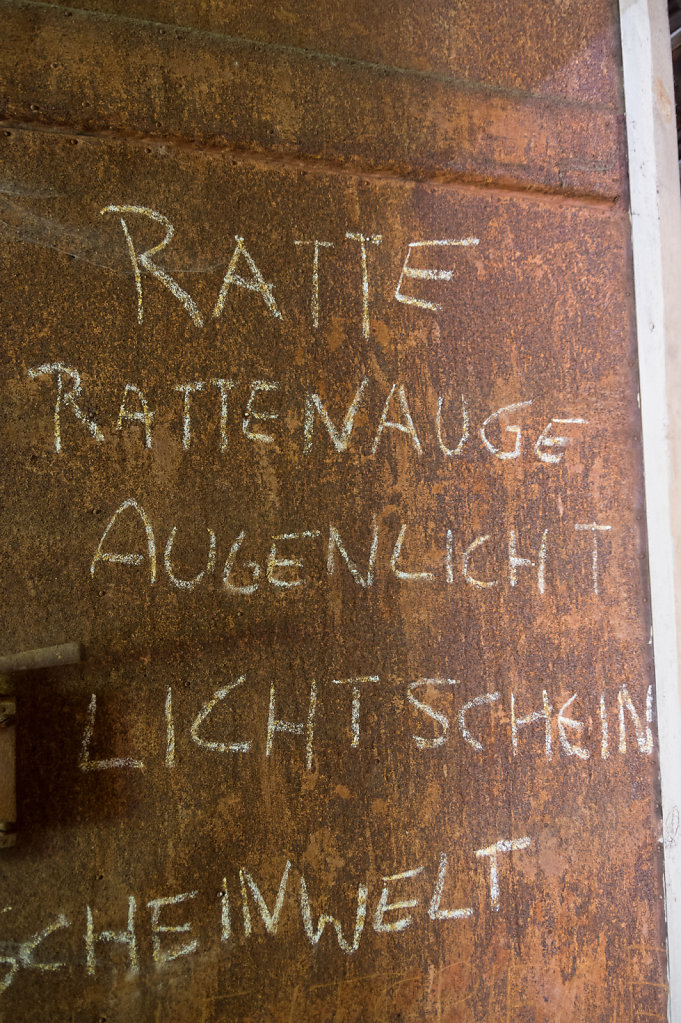 RATTE
RATTENAUGE
AUGENLICHT
LICHTSCHEIN
SCHEINWELT